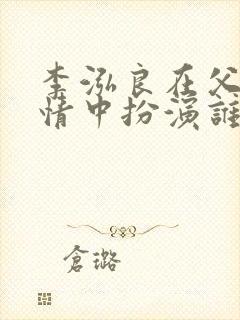 李泓良在父
情中扮演誰
倉璐